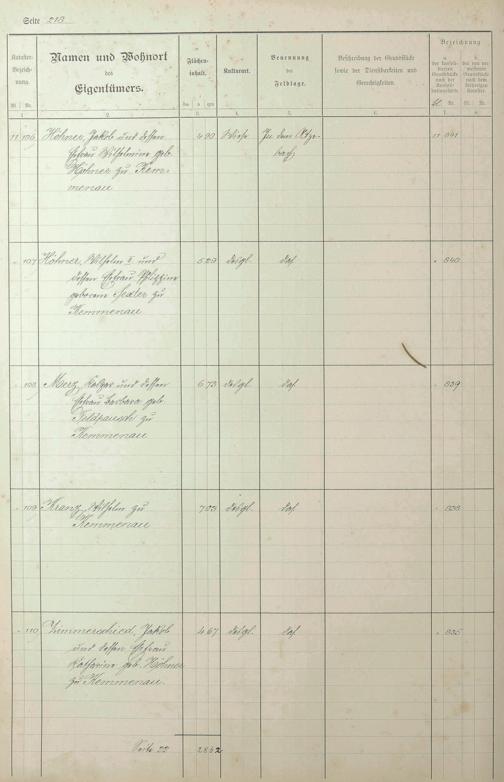 Seite 213
Kataster-
Bezeich-
nung.
Bl. Nr.
Namen und Wohnort
des
Eigentümers.
Flächen-
inhalt.
ha a qm
Kulturart.
Benennung
der
Feldlage.
Beschreibung der Grundstücke
sowie der Dienstbarkeiten und
Gerechtigkeiten.
Bezeichnung
Bl. Nr. Bl. Nr.
1. 2. 3. 4. 5. 6. 7. 8.
11 106 Höhner, Jakob und dessen 4 90 Wiese In den 11 841
Ehefrau Wilhelmine geb.
Höhner zu Kem-
menau
" 107 Höhner, Wilhelm II und 5 29 desgl. das. " 840
dessen Ehefrau Philippine
geborene zu
Kemmenau
" 108 Merz, Kaspar und dessen 6 73 desgl. das. " 839
Ehefrau Barbara geb.
Feldpausch zu
Kemmenau
" 109 Kranz, Wilhelm zu 7 03 desgl. das. " 838
Kemmenau
" 110 Zimmerschied, Jakob 4 67 desgl. das. " 835
und dessen Ehefrau
Katharine geb. Höhner
zu Kemmenau
Seite 28 62